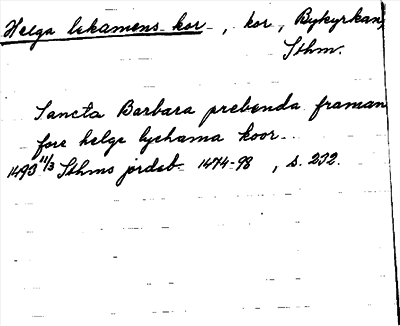 Helga lekamens kor, kor, Bykyrkan,
Sthm.
Sancta Barbara prebenda framan
fore helge lychama koor.
1493 11/3 Sthms jordeb 1474-98, s. 232.